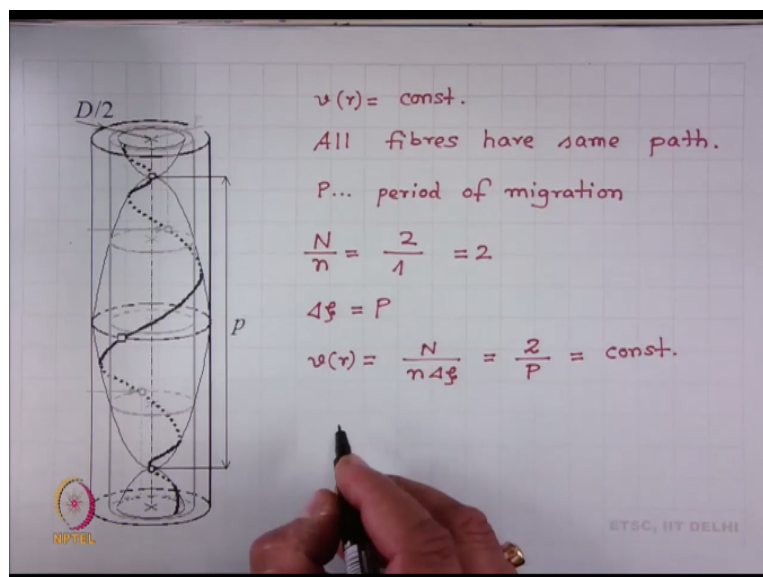 D/2
p
ν(r) = const.
All fibres have same path.
P... period of migration
N/n = 2/1 = 2
Δξ = P
ν(r) = N/nΔξ = 2/P = const.
NPTEL
ETSC, IIT DELHI